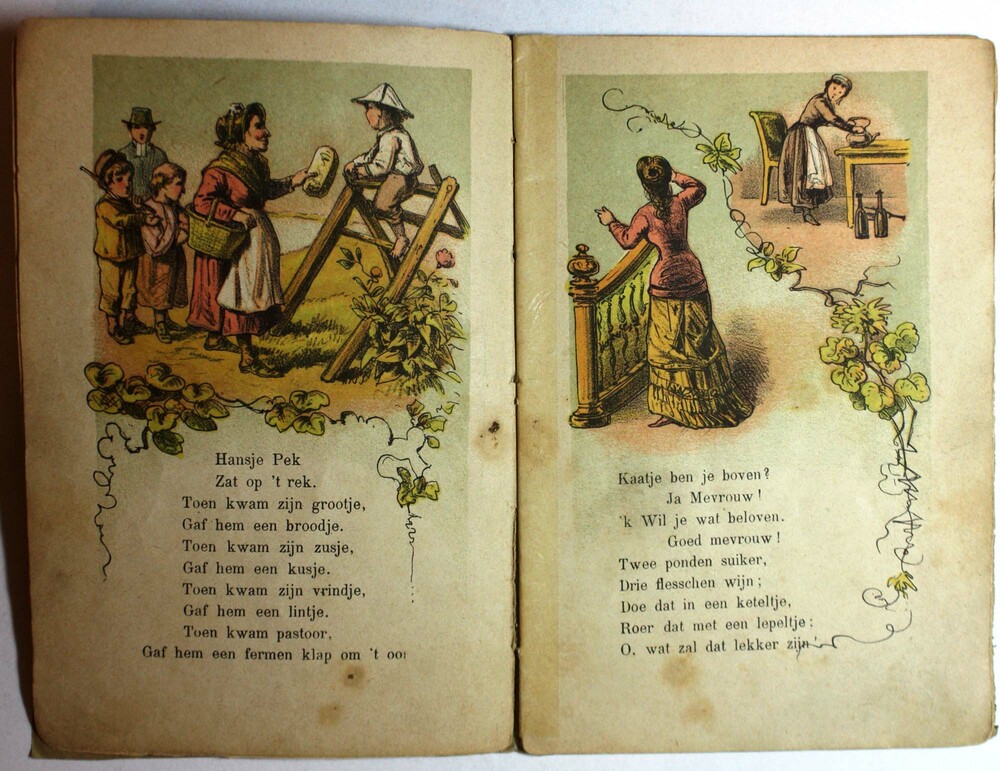 Hansje Pek
Zat op 't rek.
Toen kwam zijn grootje,
Gaf hem een broodje.
Toen kwam zijn zusje,
Gaf hem een kusje.
Toen kwam zijn vrindje,
Gaf hem een lintje.
Toen kwam pastoor,
Gaf hem een fermen klap om 't oor
Kaatje ben je boven?
Ja Mevrouw!
'k Wil je wat beloven.
Goed mevrouw!
Twee ponden suiker,
Drie flesschen wijn;
Doe dat in een keteltje,
Roer dat met een lepeltje;
O, wat zal dat lekker zijn!